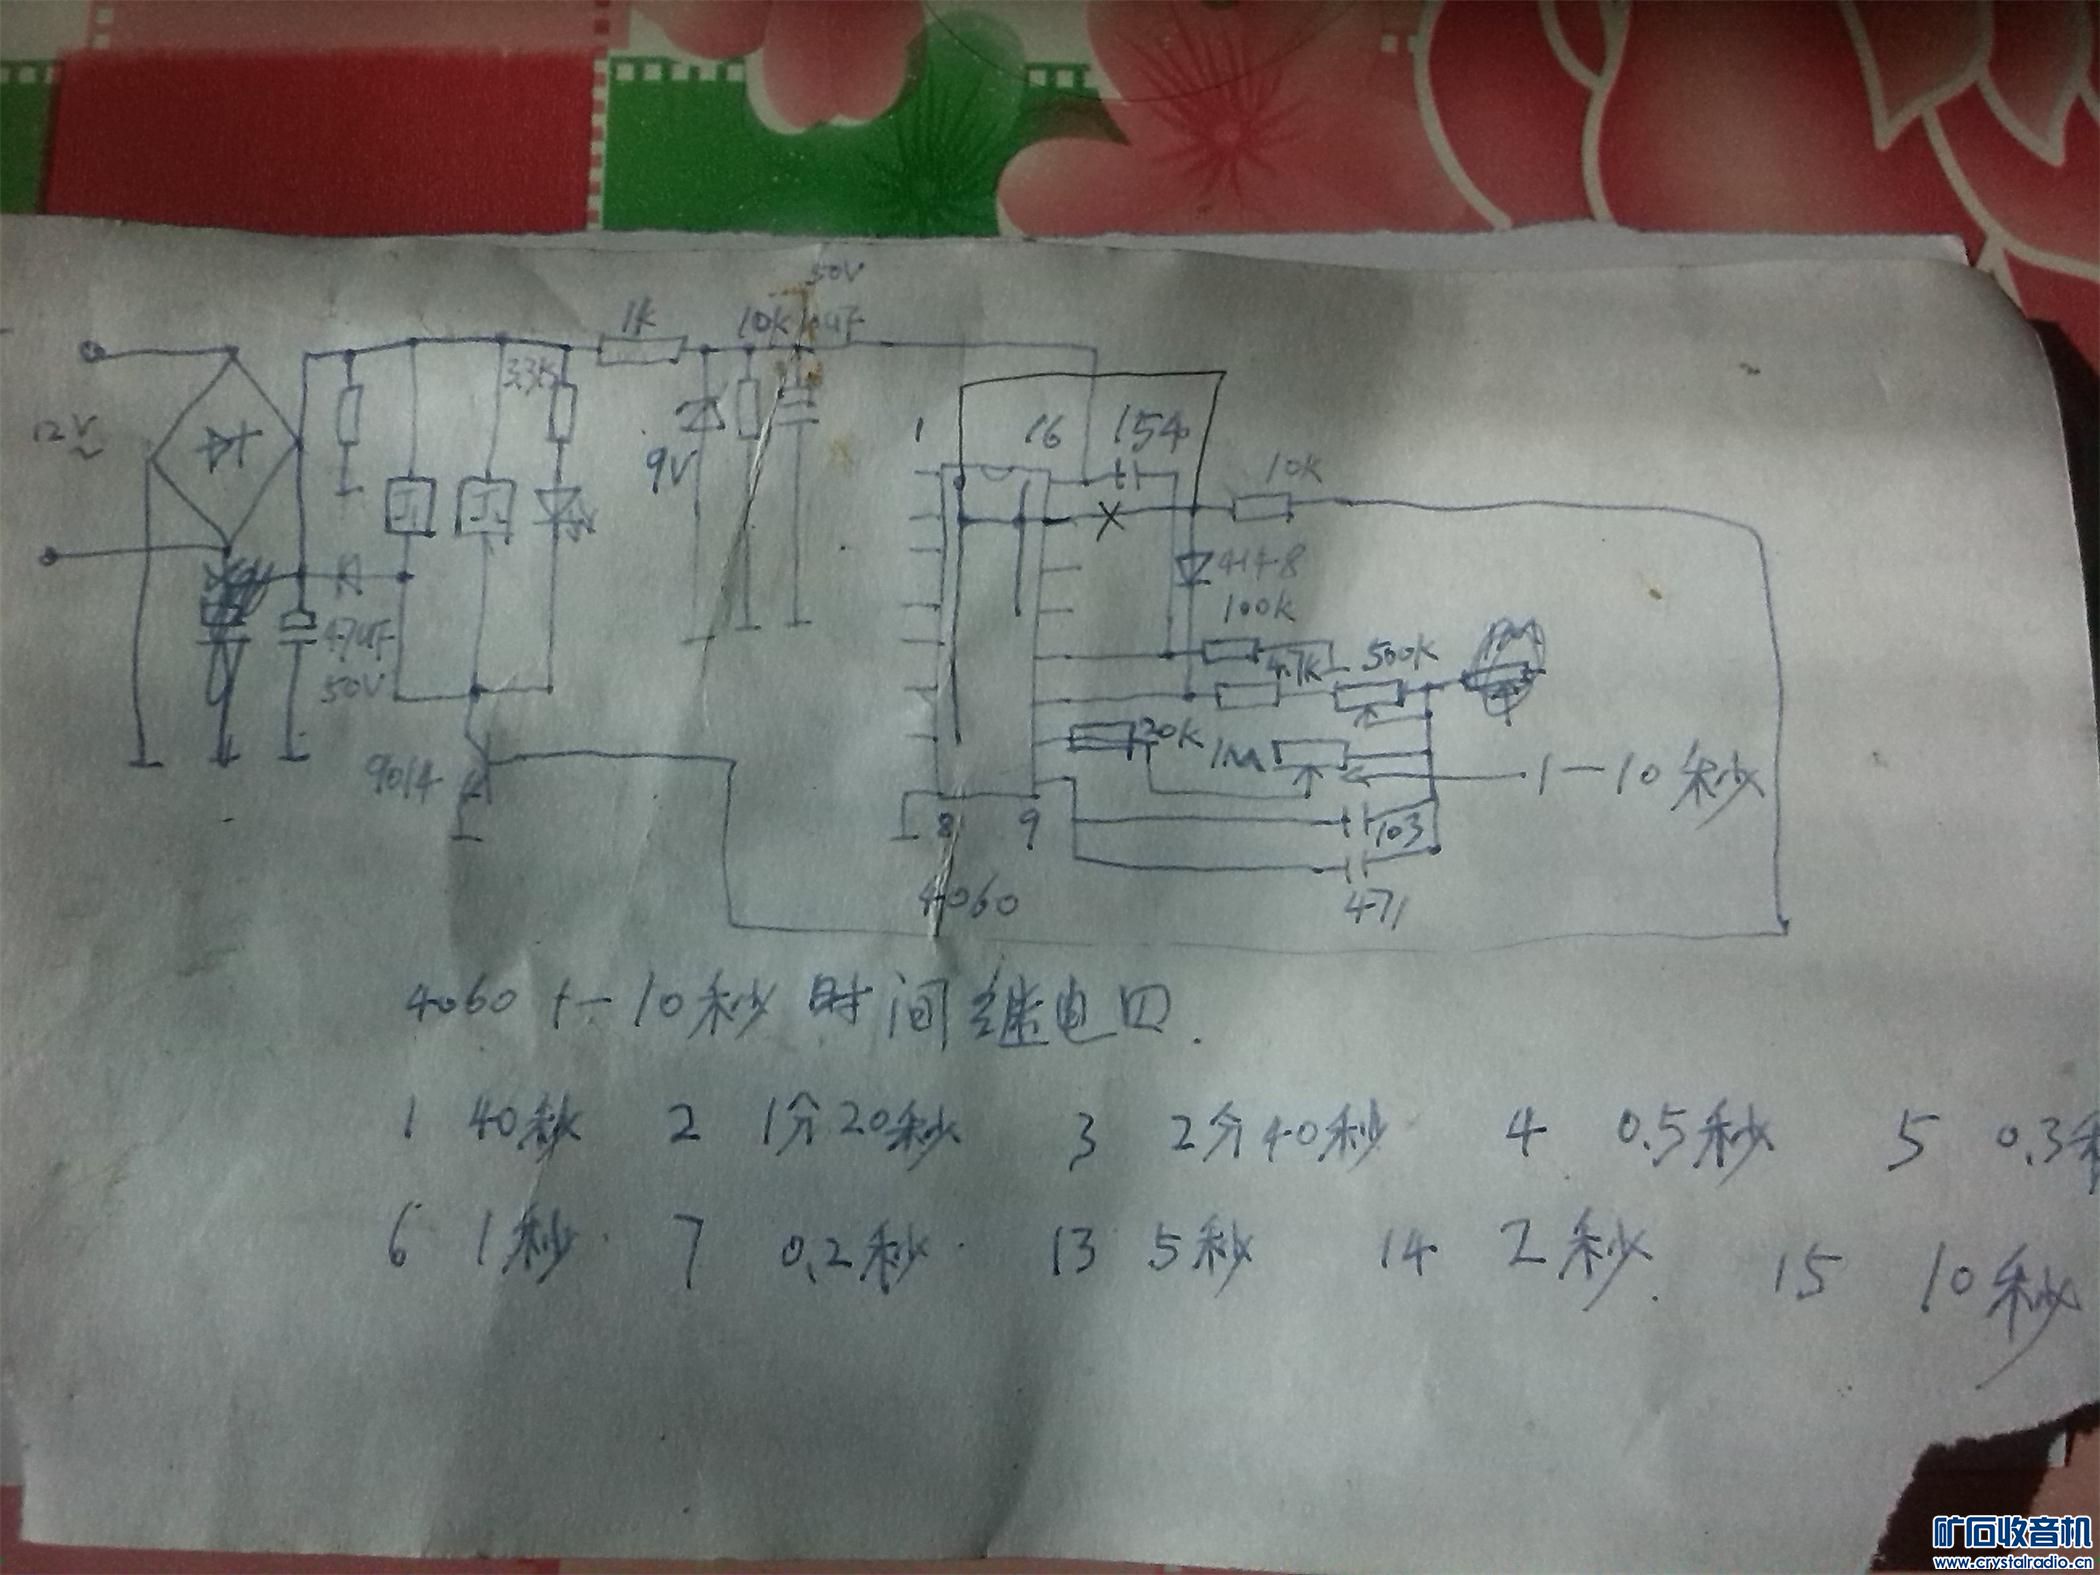 50V
1K 10K 10uF
3.3K
12V
~
9V
1 16 154
10K
4148
100K
47uF
50V
4.7K 500K
20K 1M
1—10秒
9014
8 9 103
4060
471
4060 1—10秒时间继电四.
1 40秒 2 1分20秒 3 2分40秒 4 0.5秒 5 0.3秒
6 1秒. 7 0.2秒. 13 5秒 14 2秒. 15 10秒
矿石收音机
www.crystalradio.cn